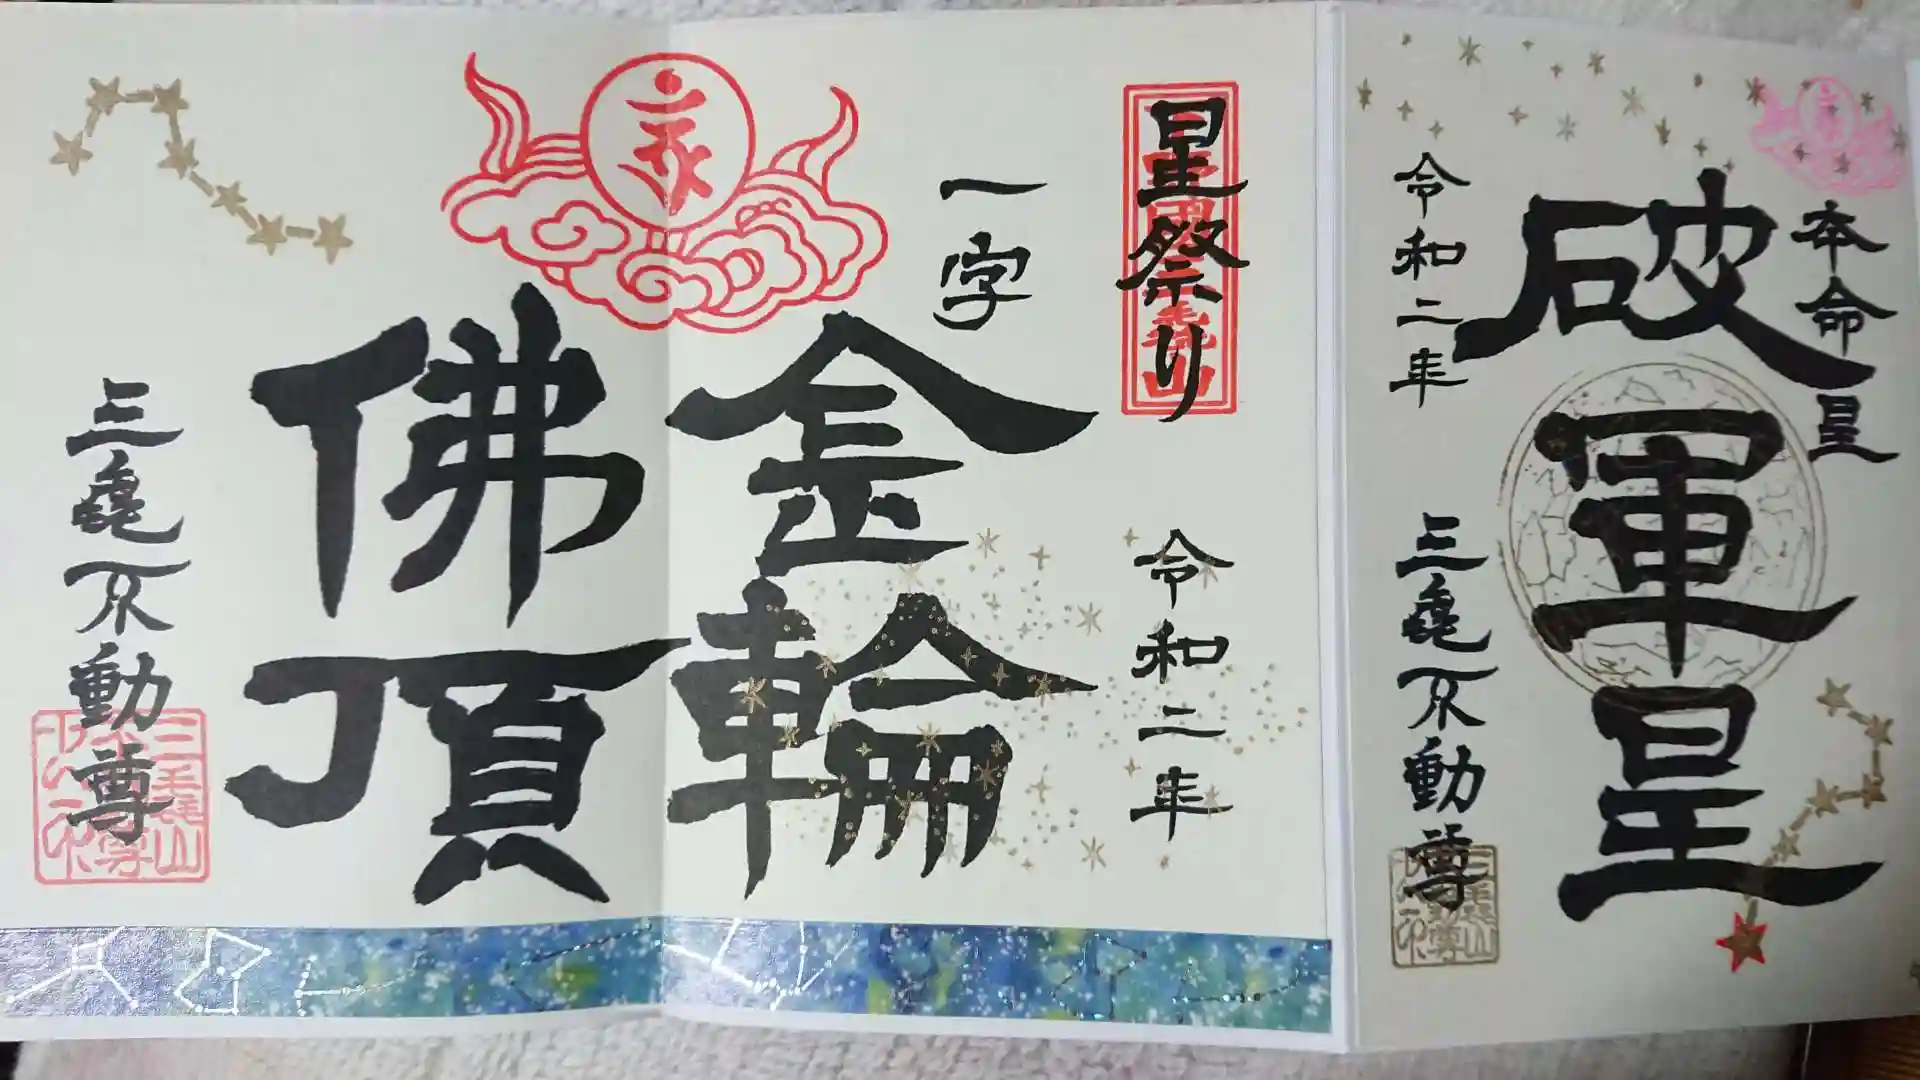 本命星
破軍星
令和二年
三龜不動尊
星祭り
令和二年
一字
金輪
佛頂
三龜不動尊